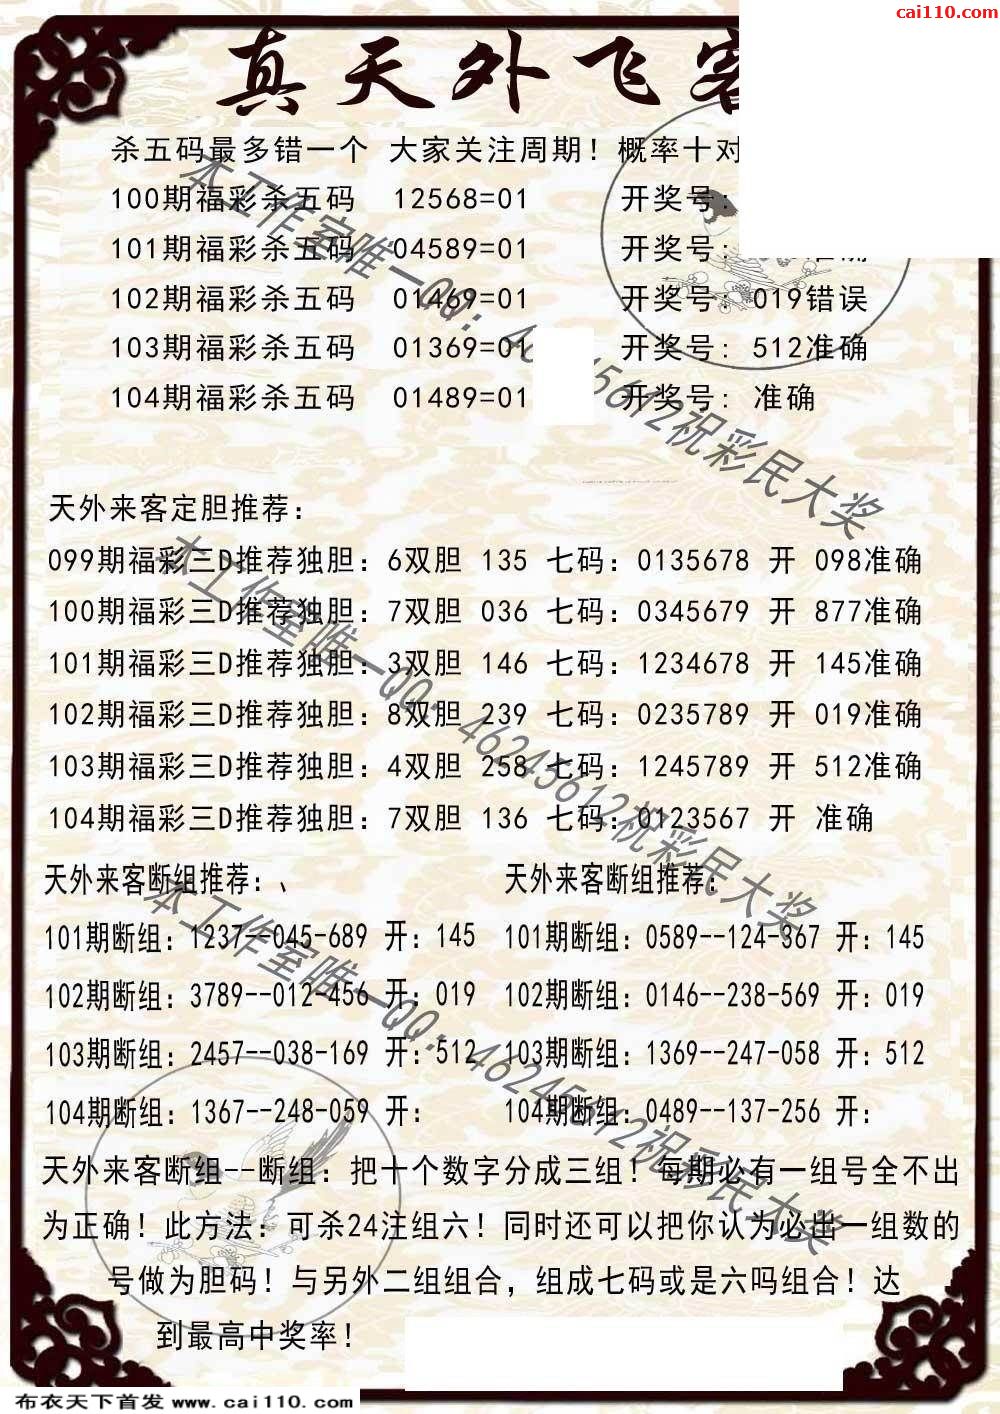 cai110.com
真天外飞客
杀五码最多错一个 大家关注周期！概率十对
100期福彩杀五码 12568=01 开奖号：
101期福彩杀五码 04589=01 开奖号：
102期福彩杀五码 01469=01 开奖号：019错误
103期福彩杀五码 01369=01 开奖号：512准确
104期福彩杀五码 01489=01 开奖号：准确
天外来客定胆推荐：
099期福彩三D推荐独胆：6双胆 135 七码：0135678 开 098准确
100期福彩三D推荐独胆：7双胆 036 七码：0345679 开 877准确
101期福彩三D推荐独胆：3双胆 146 七码：1234678 开 145准确
102期福彩三D推荐独胆：8双胆 239 七码：0235789 开 019准确
103期福彩三D推荐独胆：4双胆 258 七码：1245789 开 512准确
104期福彩三D推荐独胆：7双胆 136 七码：0123567 开 准确
天外来客断组推荐：、
101期断组：1237--045-689 开：145
102期断组：3789--012-456 开：019
103期断组：2457--038-169 开：512
104期断组：1367--248-059 开：
天外来客断组推荐：
101期断组：0589--124-367 开：145
102期断组：0146--238-569 开：019
103期断组：1369--247-058 开：512
104期断组：0489--137-256 开：
天外来客断组--断组：把十个数字分成三组！每期必有一组号全不出
为正确！此方法：可杀24注组六！同时还可以把你认为必出一组数的
号做为胆码！与另外二组组合，组成七码或是六吗组合！达
到最高中奖率！
本工作室唯一QQ：46245612祝彩民大奖
本工作室唯一QQ：46245612祝彩民大奖
布衣天下首发 www.cai110.com